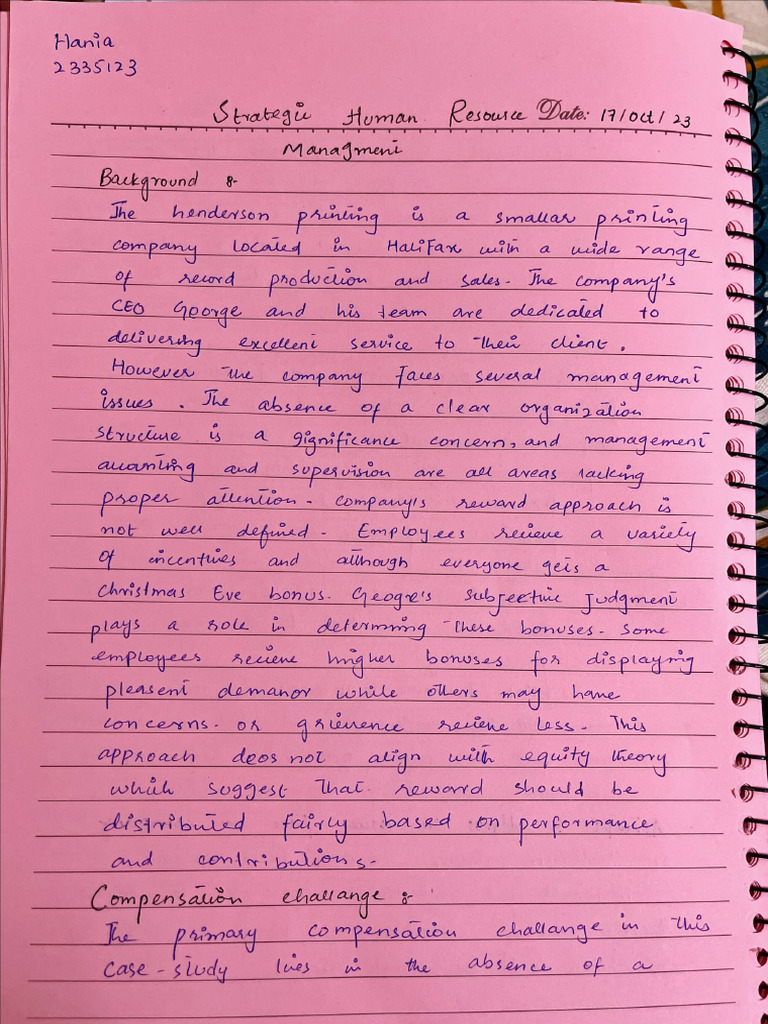 Hania
2335123
Strategic Human Resource Date: 17/Oct/23
Managment
Background :-
The henderson printing is a smallar printing
company located in Halifax with a wide range
of record production and sales. The company's
CEO Goorge and his team are dedicated to
delivering excellent service to their client.
However the company faces several management
issues. The absence of a clear organization
structure is a gignificance concern, and management
accounting and supervision are all areas lacking
proper attention. company's reward approach is
not well defined. Employees recieve a variety
of incentives and although everyone gets a
christmas Eve bonus. Geogre's subjective judgment
plays a role in determining these bonuses. Some
employees recieve higher bonuses for displaying
pleasent demanor while others may have
concerns. or grievence recieve less. This
approach deos not align with equity theory
which suggest that reward should be
distributed fairly based on performance
and contributions.
Compensation challange :-
The primary compensation challange in this
case-study lies in the absence of a